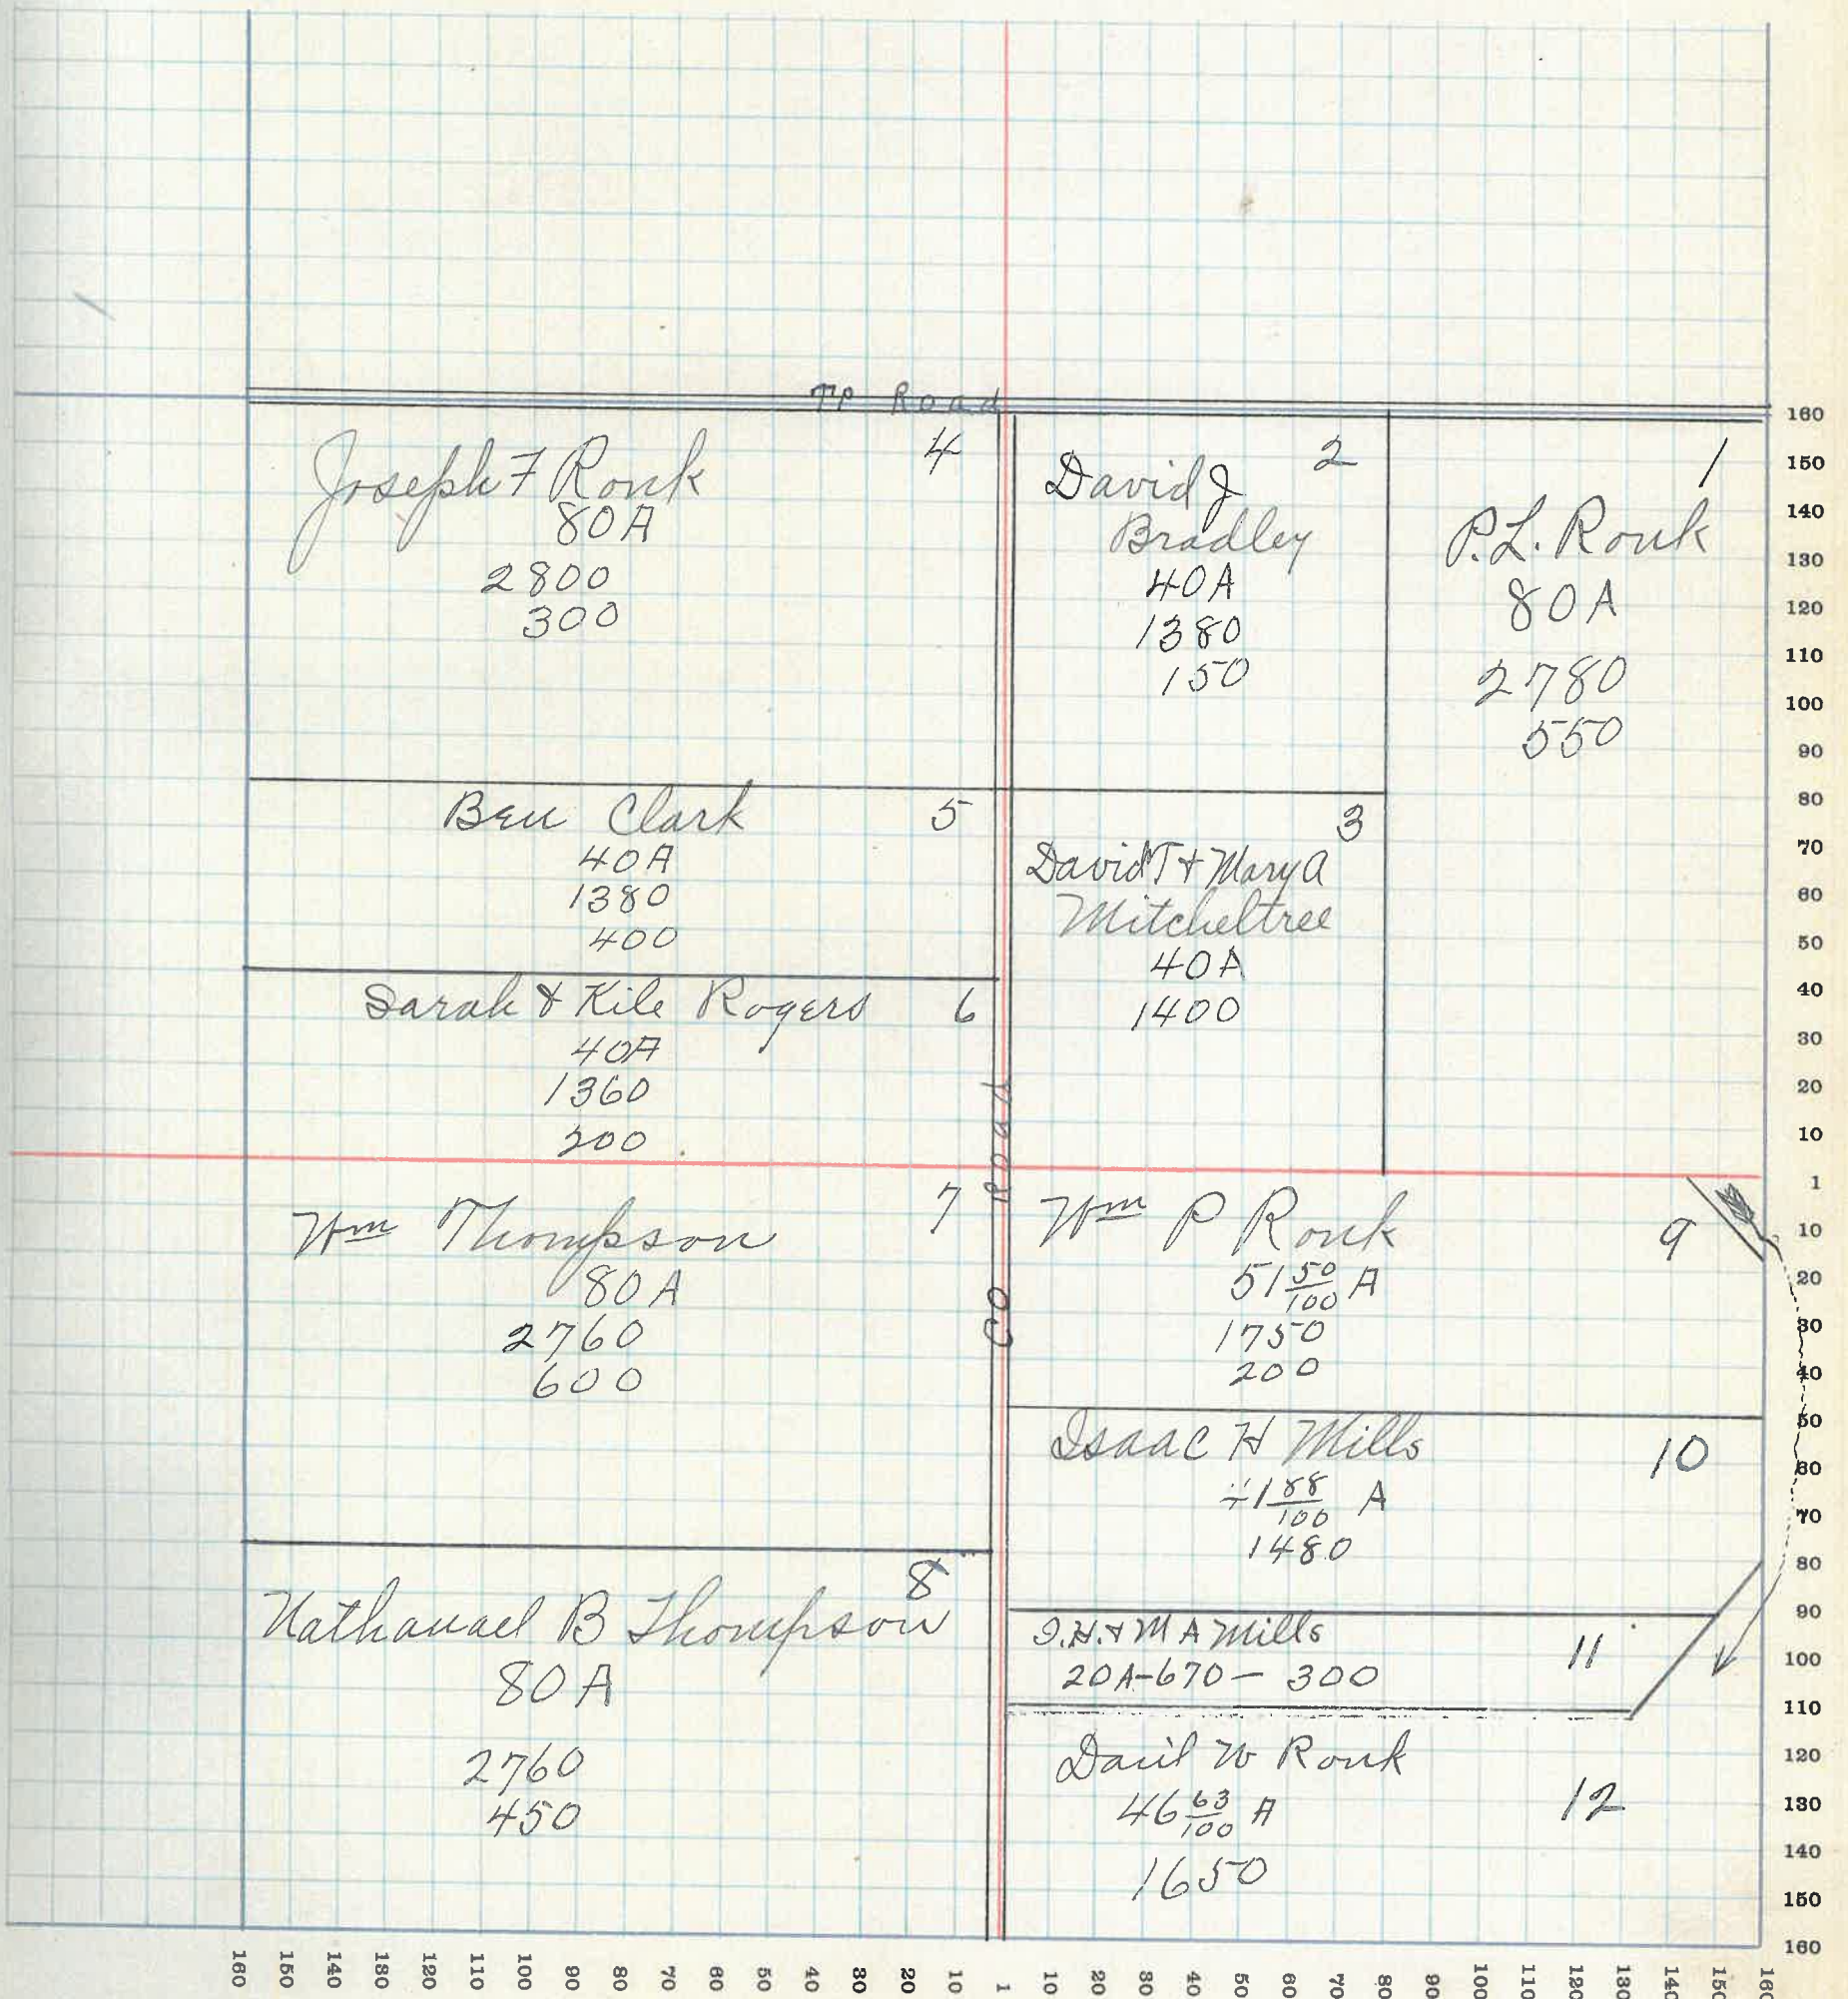 TP Road
4
Joseph F Ronk
80A
2800
300
2
David J
Bradley
40A
1380
150
1
P.L. Ronk
80A
2780
550
Ben Clark 5
40A
1380
400
3
David T & Mary A
Mitcheltree
40A
1400
Sarah & Kile Rogers 6
40A
1360
200
CO Road
7
Wm Thompson
80A
2760
600
Wm P Ronk 9
51 50/100 A
1750
200
Isaac H Mills 10
1 88/100 A
1480
8
Nathanael B Thompson
80A
2760
450
I.H. & M A Mills 11
20A-670-300
W Ronk
46 63/100 A 12
1650
160
150
140
130
120
110
100
90
80
70
60
50
40
30
20
10
1
10
20
30
40
50
60
70
80
90
100
110
120
130
140
150
160
160 150 140 130 120 110 100 90 80 70 60 50 40 30 20 10 1 10 20 30 40 50 60 70 80 90 100 110 120 130 140 150 160